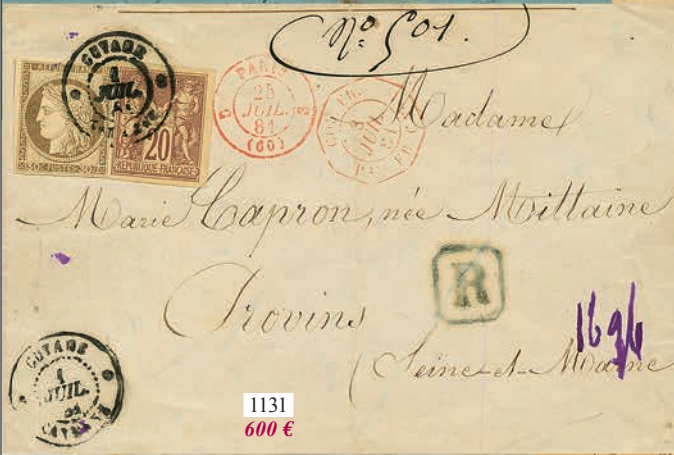 No. 501.
GUYANE
1
JUIL.
81
CAYENNE
30 C. POSTES 30 C.
20
REPUBLIQUE FRANÇAISE
PARIS
25
JUIL.
81
(60)
JUIL
81
Madame
Marie Capron, née Mittaine
Provins
(Seine-et-Marne
R
1694
GUYANE
1
JUIL.
81
CAYENNE
1131
600 €